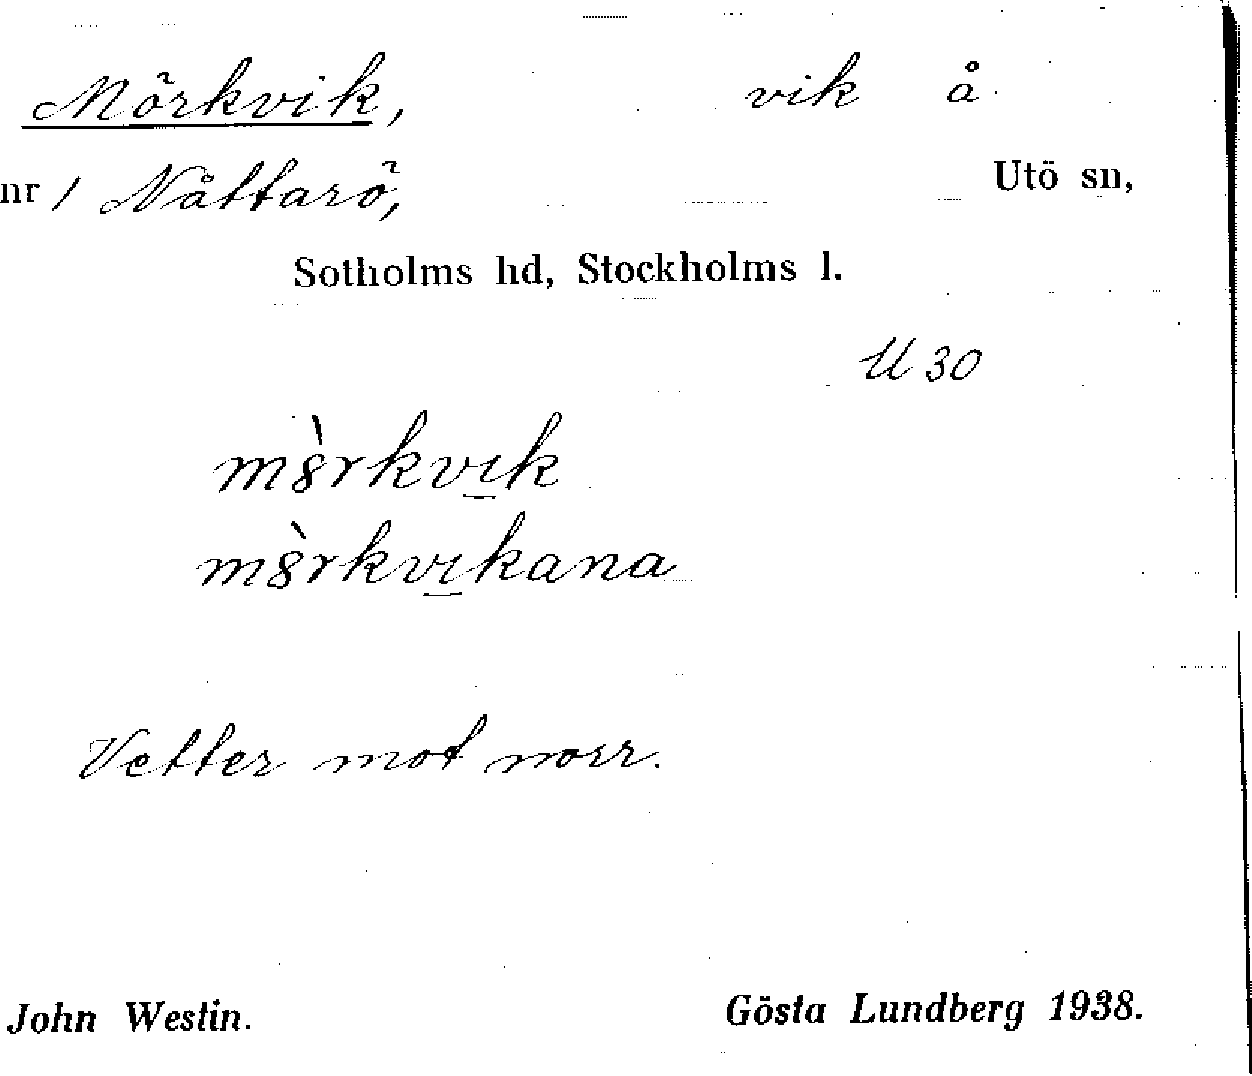 Mörkvik, vik å
nr 1 Nåttarö, Utö sn,
Sotholms hd, Stockholms l.
U 30
m8̀rkvı̲k
m8̀rkvı̲kana
Vetter mot norr.
John Westin. Gösta Lundberg 1938.